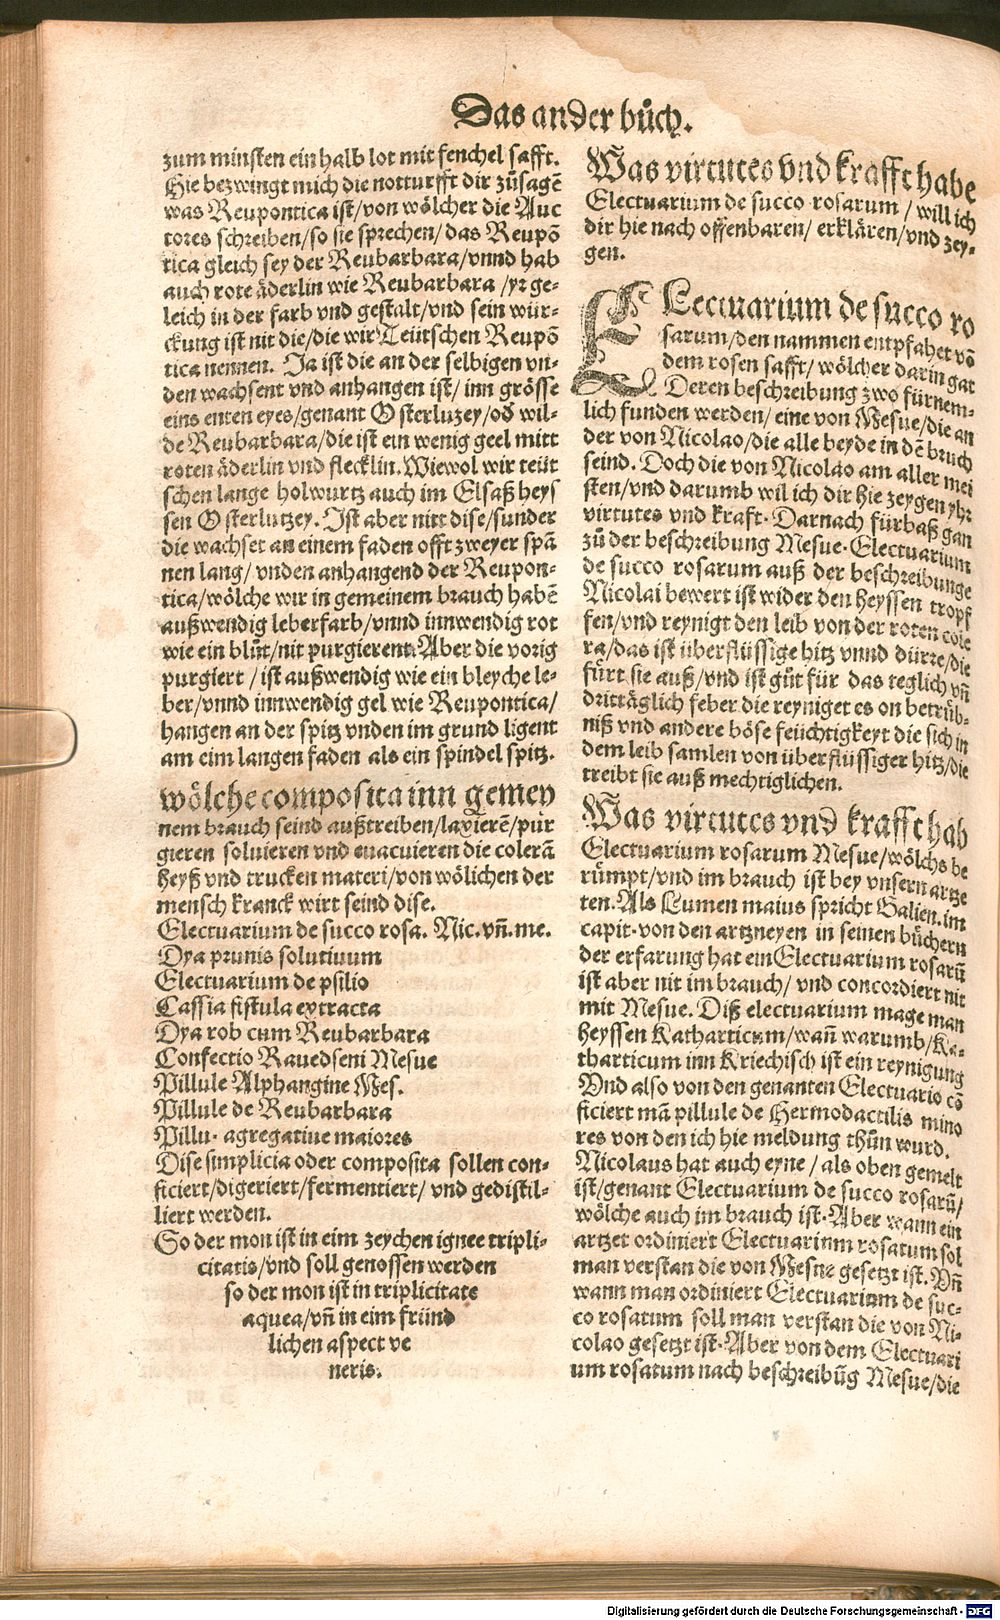 Das ander bůch.
zum minsten ein halb lot mit fenchel safft.
Hie bezwingt mich die notturfft dir zůsagē
was Reupontica ist/von wölcher die Auc
tores schreiben/so sie sprechen/das Reupō
tica gleich sey der Reubarbara/vnnd hab
auch rote äderlin wie Reubarbara/yr ge-
leich in der farb vnd gestalt/vnd sein wür-
ckung ist nit die/die wir Teütschen Reupō
tica nennen. Ja ist die an der selbigen vn-
den wachsent vnd anhangen ist/inn grösse
eins enten eyes/genant Osterluzey/oď wil-
de Reubarbara/die ist ein wenig geel mitt
roten äderlin vnd flecklin. Wiewol wir teüt
schen lange holwurtz auch im Elsaß heys
sen Osterlutzey. Ist aber nitt dise/sunder
die wachset an einem faden offt zweyer spā
nen lang/vnden anhangend der Reupon-
tica/wölche wir in gemeinem brauch habē
außwendig leberfarb/vnnd innwendig rot
wie ein blůt/nit purgierent. Aber die vorig
purgiert/ist außwendig wie ein bleyche le-
ber/vnnd innwendig gel wie Reupontica/
hangen an der spitz vnden im grund ligent
am eim langen faden als ein spindel spitz.
wölche composita inn gemey
nem brauch seind außtreiben/laxierē/pur
gieren soluieren vnd euacuieren die colerā
heyß vnd trucken materi/von wölichen der
mensch kranck wirt seind dise.
Electuarium de succo rosa. Nic. vñ. me.
Dya prunis solutiuum
Electuarium de psilio
Cassia fistula extracta
Dya rob cum Reubarbara
Confectio Rauedseni Mesue
Pillule Alphangine Mes.
Pillule de Reubarbara
Pillu. agregatiue maiores
Dise simplicia oder composita sollen con-
ficiert/digeriert/fermentiert/vnd gedistil-
liert werden.
So der mon ist in eim zeychen ignee tripli-
citatis/vnd soll genossen werden
so der mon ist in triplicitate
aquea/vñ in eim fründ
lichen aspect ve
neris.
Was virtutes vnd krafft habe
Electuarium de succo rosarum/will ich
dir hie nach offenbaren/erklären/vnd zey-
gen.
ELectuarium de succo ro
sarum/den nammen empfahet vō
dem rosen safft/wölcher darin gat
Deren beschreibung zwo fürnem-
lich funden werden/eine von Mesue/die an
der von Nicolao/die alle beyde in dē bruch
seind. Doch die von Nicolao am aller mei
sten/vnd darumb wil ich dir hie zeygen yhr
virtutes vnd kraft. Darnach fürbaß gan
zů der beschreibung Mesue. Electuarium
de succo rosarum auß der beschreibunge
Nicolai bewert ist wider den heyssen tropf
fen/vnd reynigt den leib von der roten cole
ra/das ist überflüssige hitz vnnd dürre/die
fürt sie auß/vnd ist gůt für das teglich vñ
dritträglich feber die reyniget es on betrüb-
niß vnd andere böse feüchtigkeyt die sich in
dem leib samlen von überflüssiger hitz/die
treibt sie auß mechtiglichen.
Was virtutes vnd krafft hab
Electuarium rosarum Mesue/wölchs be
rümpt/vnd im brauch ist bey vnsern artze
ten. Als Lumen maius spricht Galien. im
capit. von den artzneyen in seinen büchern
der erfarung hat ein Electuarium rosarū
ist aber nit im brauch/vnd concordiert nit
mit Mesue. Diß electuarium mage man
heyssen Katharticum/wañ warumb/Ka-
tharticum inn Kriechisch ist ein reynigung
Vnd also von den genanten Electuario cō
ficiert mā pillule de Hermodactilis mino
res von den ich hie meldung thůn wurd.
Nicolaus hat auch eyne/als oben gemelt
ist/genant Electuarium de succo rosarū/
wölche auch im brauch ist. Aber wann ein
artzet ordiniert Electuarium rosatum sol
man verstan die von Mesue gesetzt ist. Vñ
wann man ordiniert Electuarium de suc-
co rosatum soll man verstan die von Ni-
colao gesetzt ist. Aber von dem Electuari
um rosatum nach beschreibūg Mesue/die
Digitalisierung gefördert durch die Deutsche Forschungsgemeinschaft - DFG